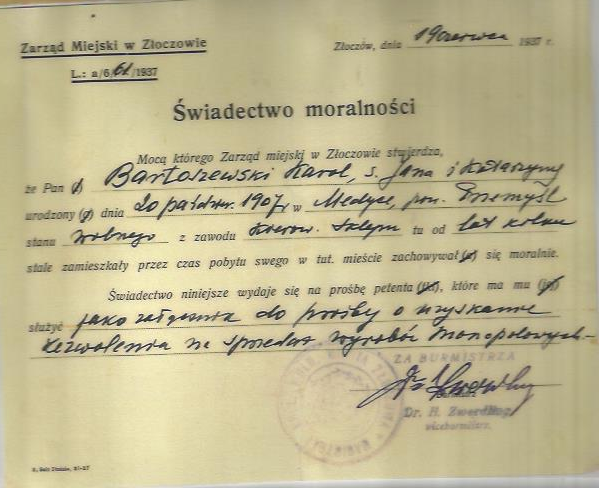 Zarząd Miejski w Złoczowie
Złoczów, dnia 19 czerwca 1937 r.
L.: a/6/61/1937
Świadectwo moralności
Mocą którego Zarząd miejski w Złoczowie stwierdza,
że Pan Bartoszewski Karol, s. Jana i Katarzyny
urodzony (a) dnia 20 paździer. 1907 r. w Medyce, pow. Przemyśl
stanu wolnego z zawodu kierow. sklepu tu od lat kilku
stale zamieszkały przez czas pobytu swego w tut. mieście zachowywał (a) się moralnie.
Świadectwo niniejsze wydaje się na prośbę petenta (tki), które ma mu (jej)
służyć jako załącznik do prośby o uzyskanie
zezwolenia na sprzedaż wyrobów monopolowych.-
ZA BURMISTRZA
Dr. H. Zwerdling
wiceburmistrz.